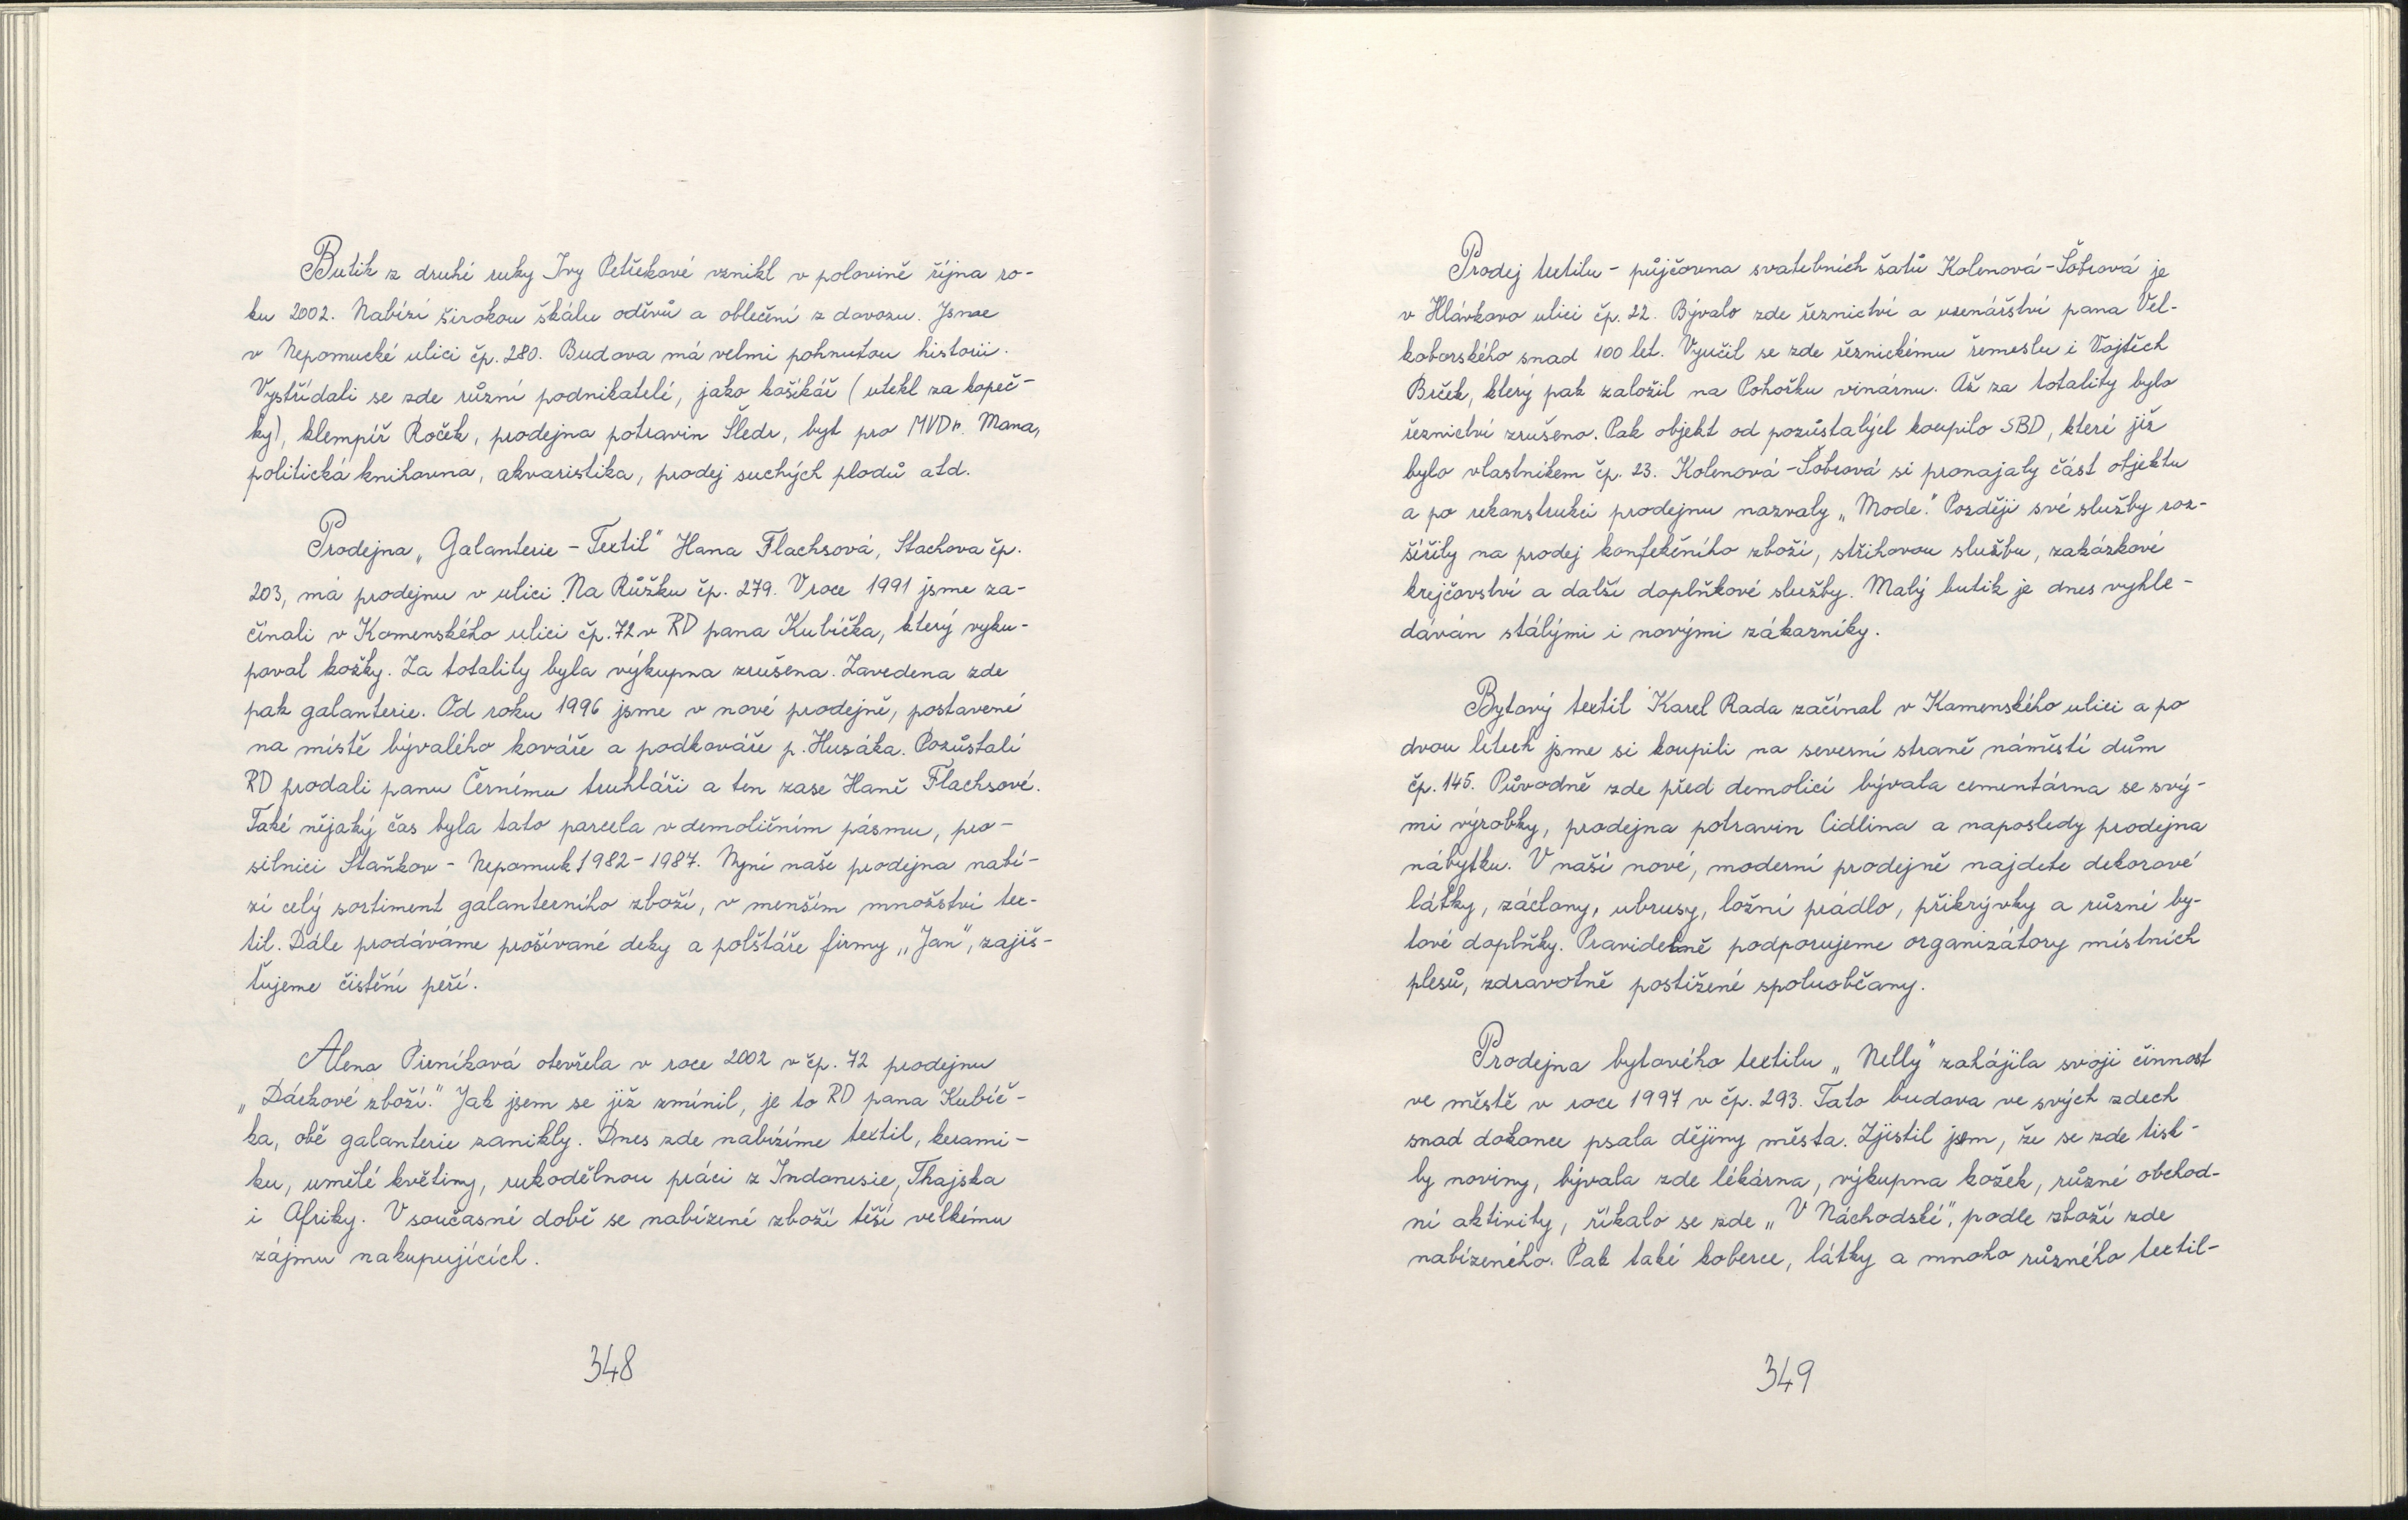 Butik z druhé ruky Ivy Petřekové vznikl v polovině října ro-
ku 2002. Nabízí širokou škálu oděvů a oblečení z dovozu. Jsme
v Nepomucké ulici čp. 280. Budova má velmi pohnutou historii.
Vystřídali se zde různí podnikatelé, jako košíkář (utekl za kopeč-
ky), klempíř Roček, prodejna potravin Šledr, byt pro MVDr. Mana,
politická knihovna, akvaristika, prodej suchých plodů atd.
Prodejna „Galanterie - Textil" Hana Flachsová, Stachova čp.
203, má prodejnu v ulici Na Růžku čp. 279. V roce 1991 jsme za-
čínali v Komenského ulici čp. 72 v RD pana Kubíčka, který vyku-
poval kožky. Za totality byla výkupna zrušena. Zavedena zde
pak galanterie. Od roku 1996 jsme v nové prodejně, postavené
na místě bývalého kováře a podkováře p. Husáka. Pozůstalí
RD prodali panu Černému truhláři a ten zase Haně Flachsové.
Také nějaký čas byla tato parcela v demoličním pásmu, pro-
silnici Staňkov - Nepomuk 1982 - 1987. Nyní naše prodejna nabí-
zí celý sortiment galanterního zboží, v menším množství tex-
til. Dále prodáváme prošívané deky a polštáře firmy „Jan", zajiš-
ťujeme čistění peří.
Alena Pirníková otevřela v roce 2002 v čp. 72 prodejnu
„Dárkové zboží." Jak jsem se již zmínil, je to RD pana Kubíč-
ka, obě galanterie zanikly. Dnes zde nabízíme textil, kerami-
ku, umělé květiny, rukodělnou práci z Indonesie, Thajska
i Afriky. V současné době se nabízené zboží těší velkému
zájmu nakupujících.
348
Prodej textilu - půjčovna svatebních šatů Kolenová - Šobrová je
v Hlávkovo ulici čp. 22. Bývalo zde řeznictví a uzenářství pana Vel-
koborského snad 100 let. Vyučil se zde řeznickému řemeslu i Vojtěch
Brček, který pak založil na Pohořku vinárnu. Až za totality bylo
řeznictví zrušeno. Pak objekt od pozůstalých koupilo SBD, které již
bylo vlastníkem čp. 23. Kolenová - Šobrová si pronajaly část objektu
a po rekonstrukci prodejnu nazvaly „Mode." Později své služby roz-
šířily na prodej konfekčního zboží, střihovou službu, zakázkové
krejčovství a další doplňkové služby. Malý butik je dnes vyhle-
dáván stálými i novými zákazníky.
Bytový textil Karel Rada začínal v Komenského ulici a po
dvou letech jsme si koupili na severní straně náměstí dům
čp. 145. Původně zde před demolicí bývala cementárna se svý-
mi výrobky, prodejna potravin Cidlina a naposledy prodejna
nábytku. V naší nové, moderní prodejně najdete dekorové
látky, záclony, ubrusy, ložní prádlo, přikrývky a různé by-
tové doplňky. Pravidelně podporujeme organizátory místních
plesů, zdravotně postižené spoluobčany.
Prodejna bytového textilu „Nelly" zahájila svoji činnost
ve městě v roce 1997 v čp. 293. Tato budova ve svých zdech
snad dokonce psala dějiny města. Zjistil jsem, že se zde tisk-
ly noviny, bývala zde lékárna, výkupna kožek, různé obchod-
ní aktivity, říkalo se zde „V Náchodské", podle zboží zde
nabízeného. Pak také koberce, látky a mnoho různého textil-
349